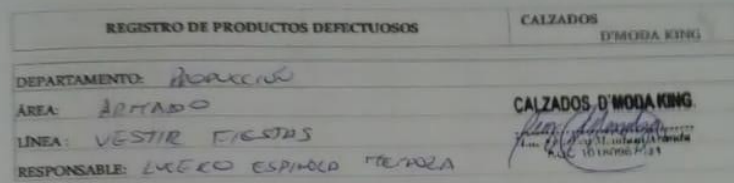 REGISTRO DE PRODUCTOS DEFECTUOSOS
CALZADOS
D'MODA KING
DEPARTAMENTO: PRODUCCION
ÁREA: ARMADO
LÍNEA: VESTIR FIESTAS
RESPONSABLE: LUCERO ESPINOZA
CALZADOS D'MODA KING